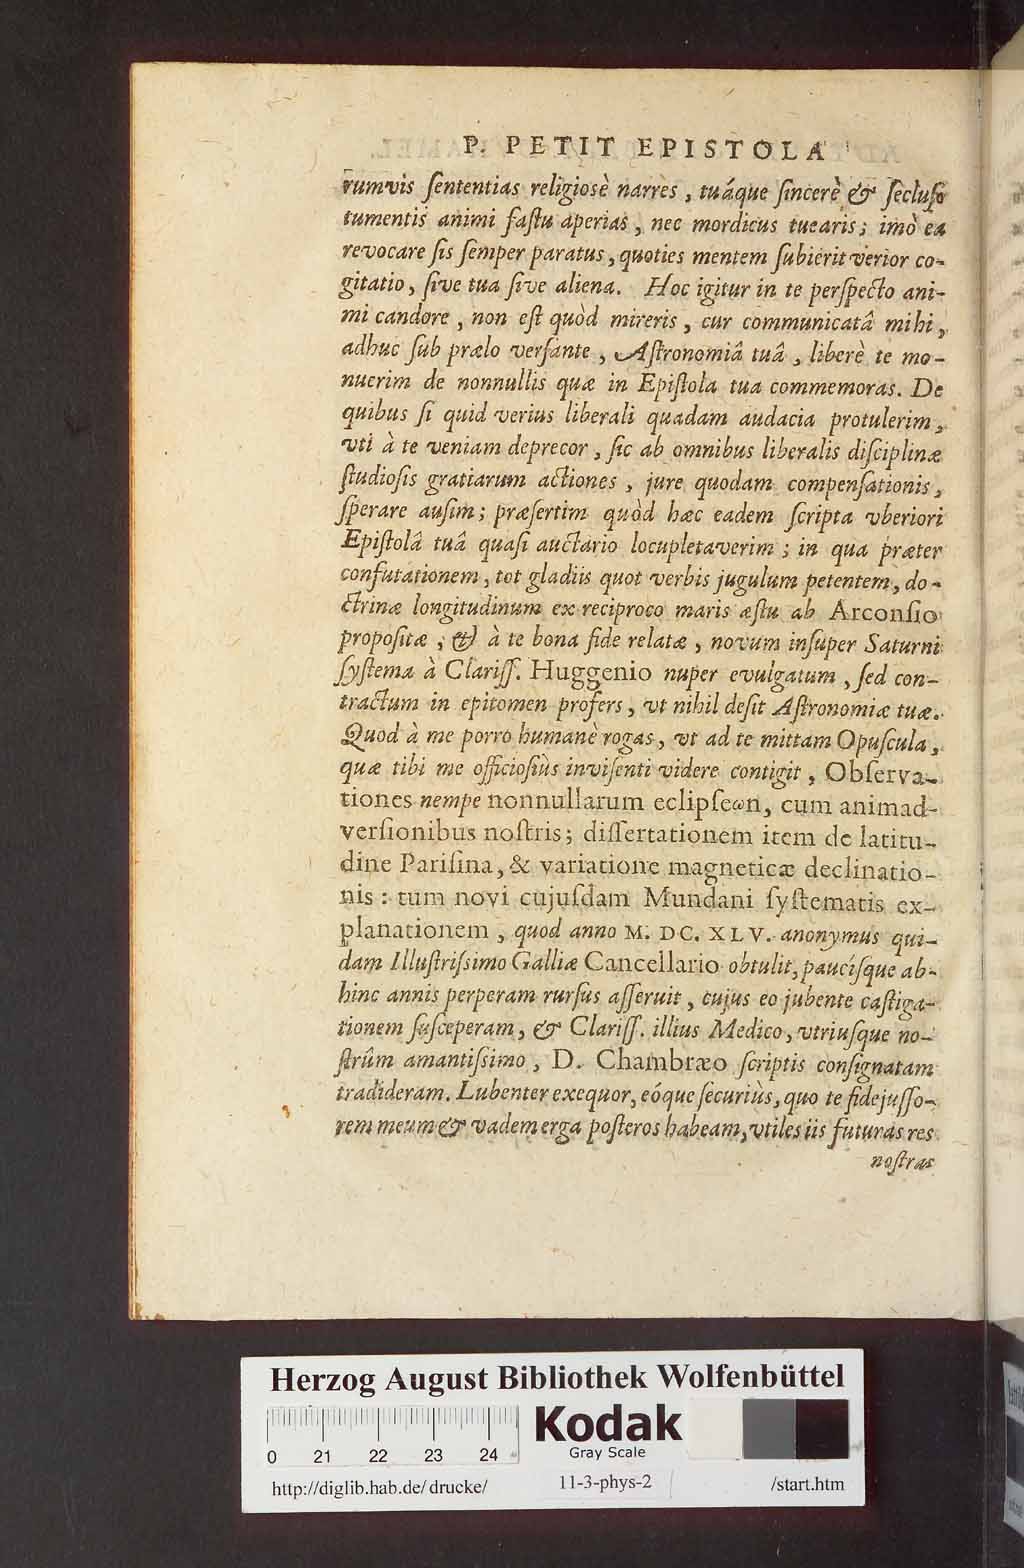 P. PETIT EPISTOLA
rumvis ſententias religioſè narres, tuáque ſincerè & ſecluſo
tumentis animi faſtu aperias, nec mordicus tuearis; imò ea
revocare ſis ſemper paratus, quoties mentem ſubierit verior co-
gitatio, ſive tua ſive aliena. Hoc igitur in te perſpecto ani-
mi candore, non eſt quòd mireris, cur communicatâ mihi,
adhuc ſub prælo verſante, Aſtronomiâ tuâ, liberè te mo-
nuerim de nonnullis quæ in Epiſtola tua commemoras. De
quibus ſi quid verius liberali quadam audacia protulerim,
vti à te veniam deprecor, ſic ab omnibus liberalis diſciplinæ
ſtudioſis gratiarum actiones, jure quodam compenſationis,
ſperare auſim; præſertim quòd hæc eadem ſcripta vberiori
Epiſtolâ tuâ quaſi auctario locupletaverim; in qua præter
confutationem, tot gladiis quot verbis jugulum petentem, do-
ctrinæ longitudinum ex reciproco maris æſtu ab Arconſio
propoſitæ, & à te bona fide relatæ, novum inſuper Saturni
ſyſtema à Clariſſ. Huggenio nuper evulgatum, ſed con-
tractum in epitomen profers, vt nihil deſit Aſtronomiæ tuæ.
Quod à me porro humanè rogas, vt ad te mittam Opuſcula,
quæ tibi me officioſiùs inviſenti videre contigit, Obſerva-
tiones nempe nonnullarum eclipſeωn, cum animad-
verſionibus noſtris; diſſertationem item de latitu-
dine Pariſina, & variatione magneticæ declinatio-
nis: tum novi cujuſdam Mundani ſyſtematis ex-
planationem, quod anno M. DC. XLV. anonymus qui-
dam Illuſtriſsimo Galliæ Cancellario obtulit, pauciſque ab-
hinc annis perperam rurſus aſſeruit, cujus eo jubente caſtiga-
tionem ſuſceperam, & Clariſſ. illius Medico, vtriuſque no-
ſtrûm amantiſsimo, D. Chambræo ſcriptis conſignatam
tradideram. Lubenter exequor, eóque ſecuriùs, quo te fidejuſſo-
rem meum & vadem erga poſteros habeam, vtiles iis futuras res
noſtras
Herzog August Bibliothek Wolfenbüttel
Kodak
Gray Scale
0 21 22 23 24
http://diglib.hab.de/drucke/ 11-3-phys-2 /start.htm